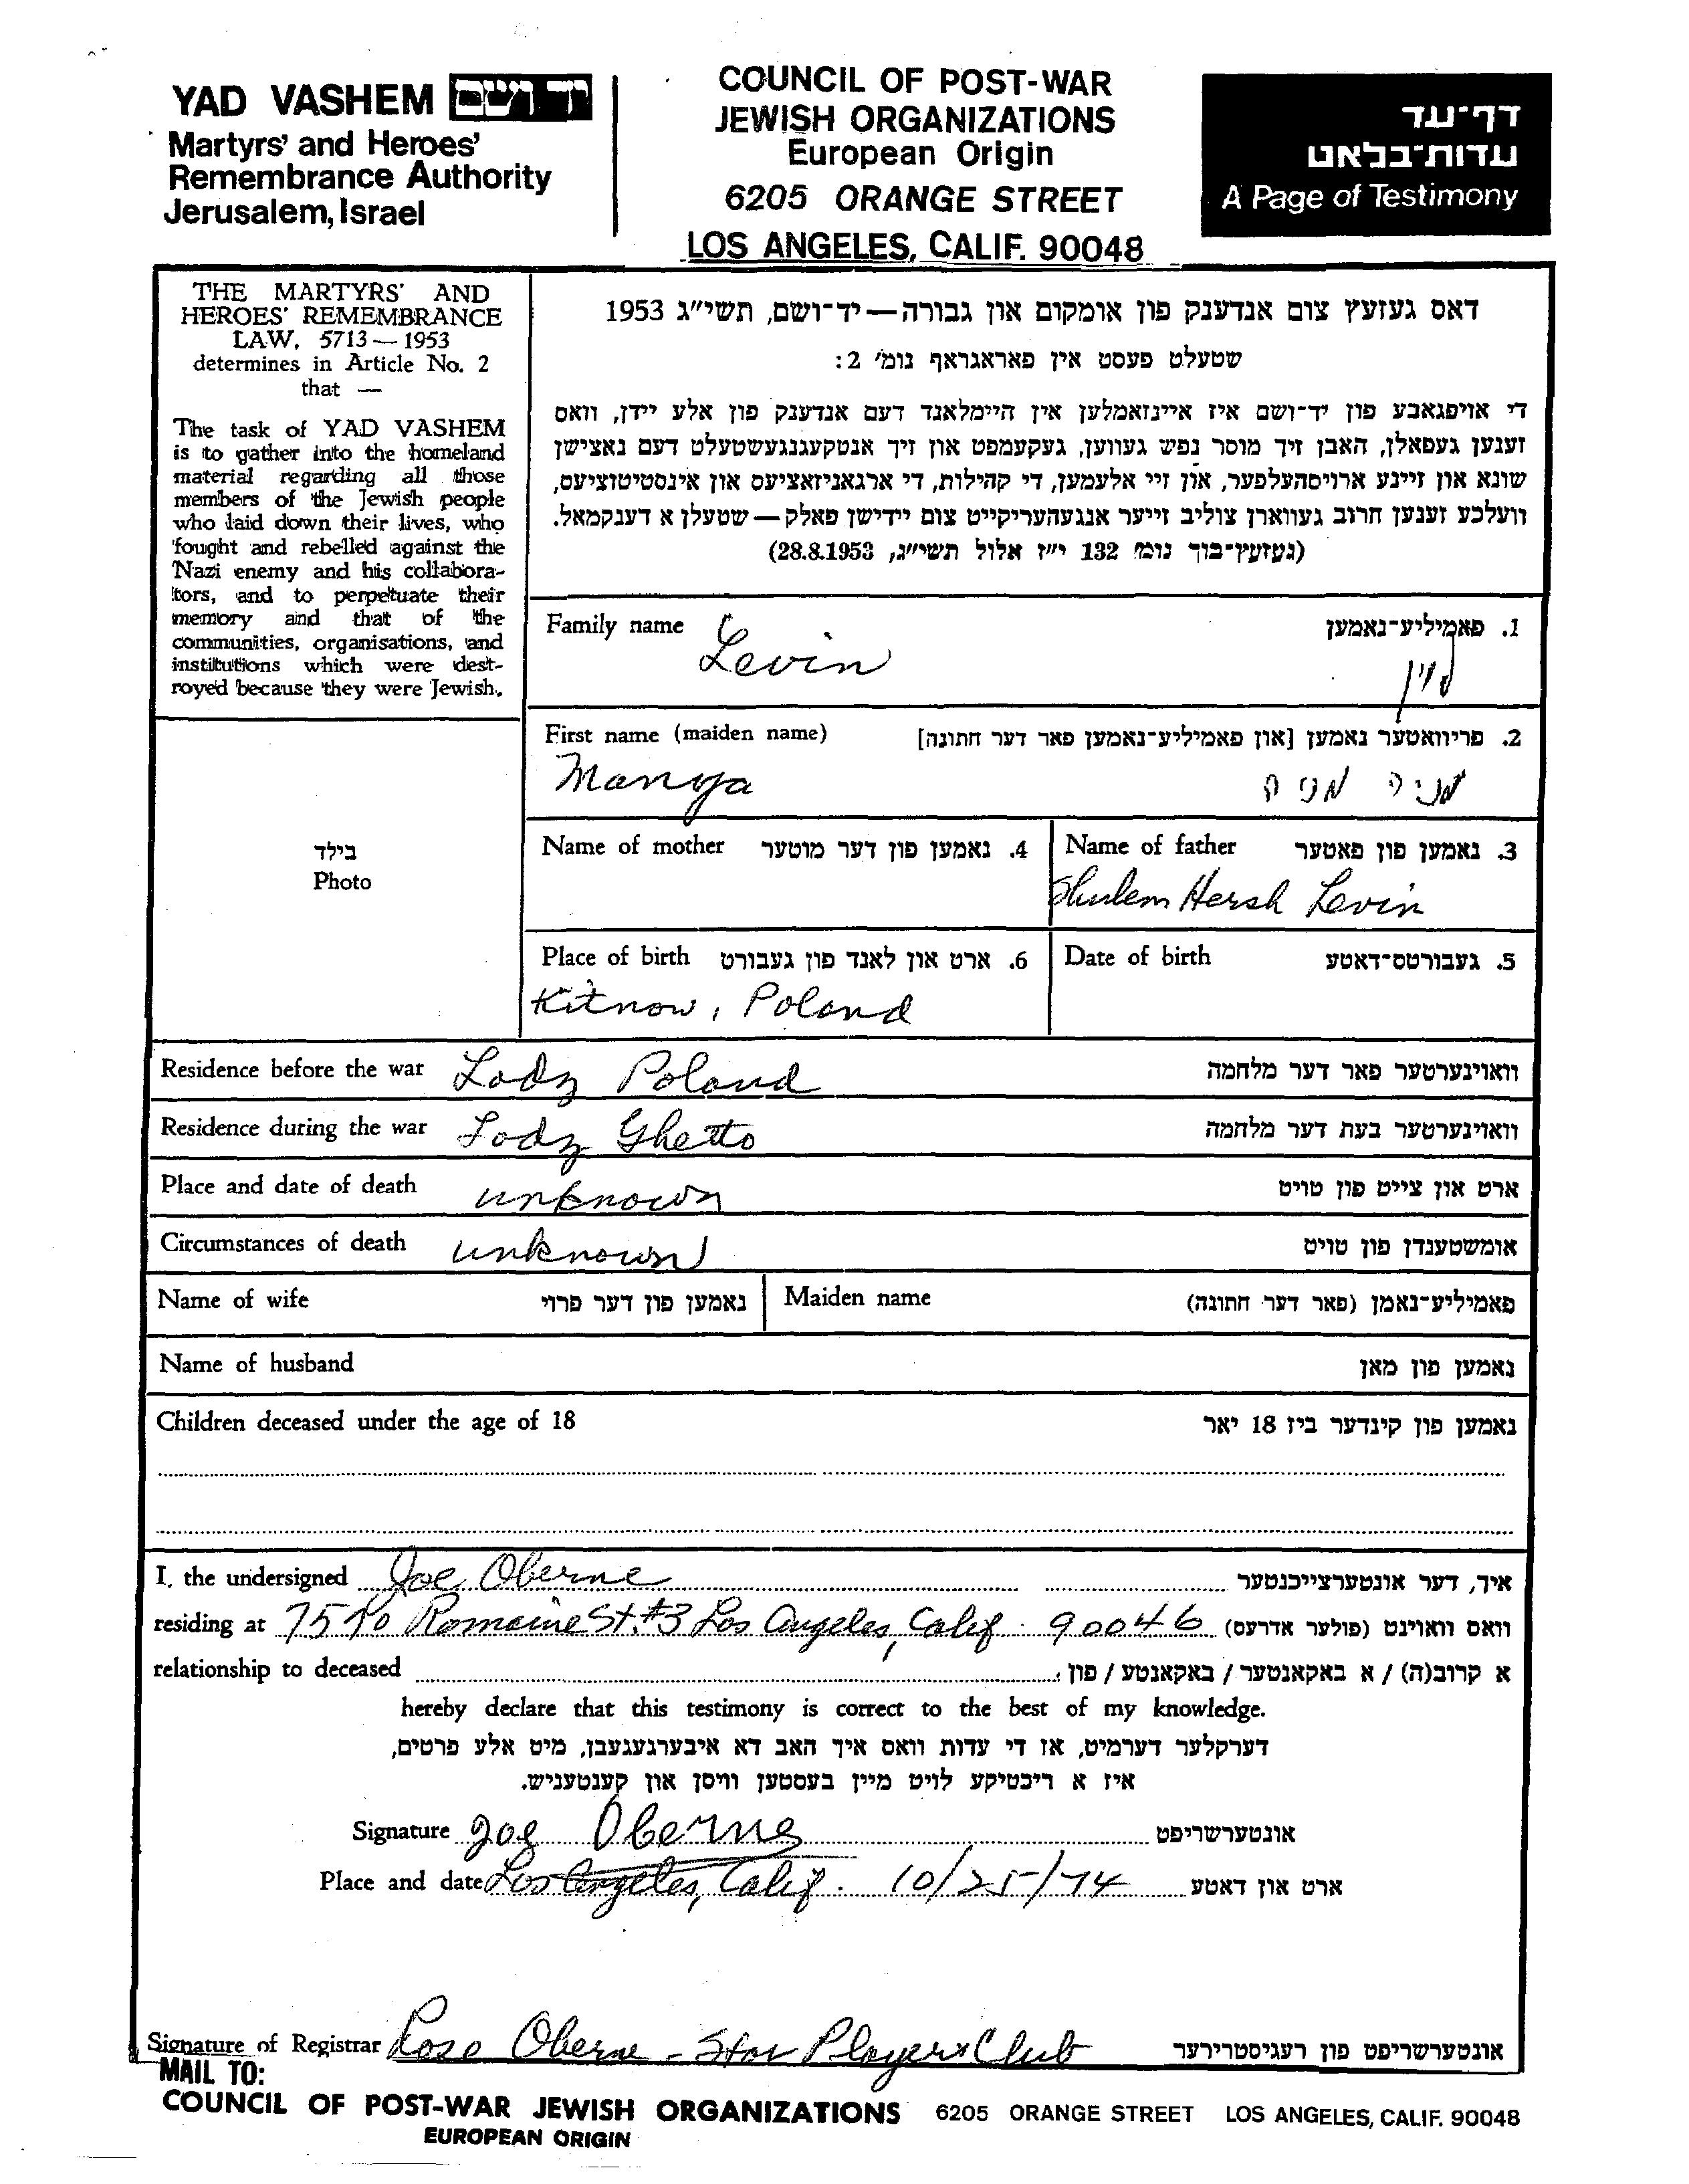 YAD VASHEM יד ושם
Martyrs' and Heroes'
Remembrance Authority
Jerusalem, Israel
COUNCIL OF POST-WAR
JEWISH ORGANIZATIONS
European Origin
6205 ORANGE STREET
LOS ANGELES, CALIF. 90048
דף-עד
עדות-בלאט
A Page of Testimony
THE MARTYRS' AND
HEROES' REMEMBRANCE
LAW, 5713 — 1953
determines in Article No. 2
that —
The task of YAD VASHEM
is to gather into the homeland
material regarding all those
members of the Jewish people
who laid down their lives, who
fought and rebelled against the
Nazi enemy and his collabora-
tors, and to perpetuate their
memory and that of the
communities, organisations, and
institutions which were dest-
royed because they were Jewish.
דאס געזעץ צום אנדענק פון אומקום און גבורה — יד-ושם, תשי"ג 1953
שטעלט פעסט אין פאראגראף נומ' 2:
די אויפגאבע פון יד-ושם איז איינזאמלען אין היימלאנד דעם אנדענק פון אלע יידן, וואס
זענען געפאלן, האבן זיך מוסר נפש געווען, געקעמפט און זיך אנטקעגנגעשטעלט דעם נאצישן
שונא און זיינע ארויסהעלפער, און זיי אלעמען, די קהילות, די ארגאניזאציעס און אינסטיטוציעס,
וועלכע זענען חרוב געווארן צוליב זייער אנגעהעריקייט צום יידישן פאלק — שטעלן א דענקמאל.
(געזעץ-בוך נומ' 132 י"ז אלול תשי"ג, 28.8.1953)
Family name Levin 1. פאמיליע-נאמען
לוין
First name (maiden name) 2. פריוואטער נאמען [און פאמיליע-נאמען פאר דער חתונה]
Manya מניה
Name of mother 4. נאמען פון דער מוטער
Name of father 3. נאמען פון פאטער
Shulem Hersh Levin
Place of birth 6. ארט און לאנד פון געבורט
Kitnow, Poland
Date of birth 5. געבורטס-דאטע
בילד
Photo
Residence before the war Lodz Poland וואוינערטער פאר דער מלחמה
Residence during the war Lodz Ghetto וואוינערטער בעת דער מלחמה
Place and date of death unknown ארט און צייט פון טויט
Circumstances of death unknown אומשטענדן פון טויט
Name of wife נאמען פון דער פרוי Maiden name פאמיליע-נאמן (פאר דער חתונה)
Name of husband נאמען פון מאן
Children deceased under the age of 18 נאמען פון קינדער ביז 18 יאר
I, the undersigned Joe Oberne איך, דער אונטערצייכנטער
residing at 7570 Romaine St. #3 Los Angeles, Calif. 90046 וואס וואוינט (פולער אדרעס)
relationship to deceased א קרוב(ה) / א באקאנטער / באקאנטע / פון
hereby declare that this testimony is correct to the best of my knowledge.
דערקלער דערמיט, אז די עדות וואס איך האב דא איבערגעגעבן, מיט אלע פרטים,
איז א ריכטיקע לויט מיין בעסטען וויסן און קענטעניש.
Signature Joe Oberne אונטערשריפט
Place and date Los Angeles, Calif. 10/25/74 ארט און דאטע
Signature of Registrar Rose Oberne - Star Players Club אונטערשריפט פון רעגיסטרירער
MAIL TO:
COUNCIL OF POST-WAR JEWISH ORGANIZATIONS 6205 ORANGE STREET LOS ANGELES, CALIF. 90048
EUROPEAN ORIGIN